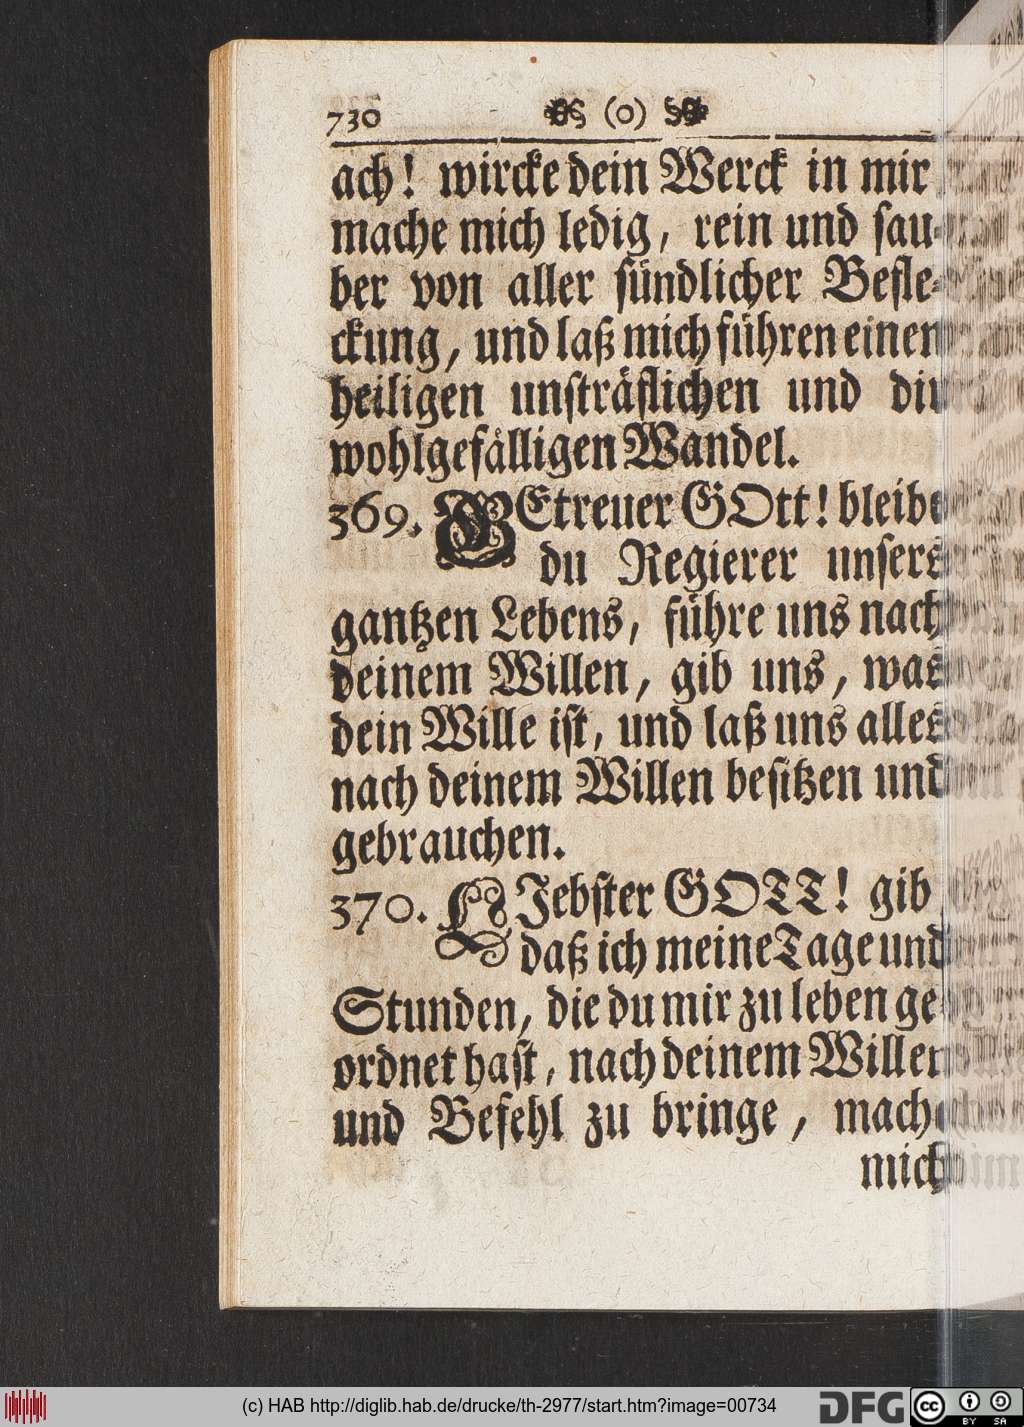 730 (0)
ach! wircke dein Werck in mir
mache mich ledig, rein und sau-
ber von aller sündlicher Befle-
ckung, und laß mich führen einen
heiligen unsträflichen und dir
wohlgefälligen Wandel.
369. GEtreuer GOtt! bleibe
du Regierer unsers
gantzen Lebens, führe uns nach
deinem Willen, gib uns, was
dein Wille ist, und laß uns alles
nach deinem Willen besitzen und
gebrauchen.
370. LIebster GOTT! gib
daß ich meine Tage und
Stunden, die du mir zu leben ge-
ordnet hast, nach deinem Willen
und Befehl zu bringe, mach
mich
(c) HAB http://diglib.hab.de/drucke/th-2977/start.htm?image=00734
DFG
cc BY SA